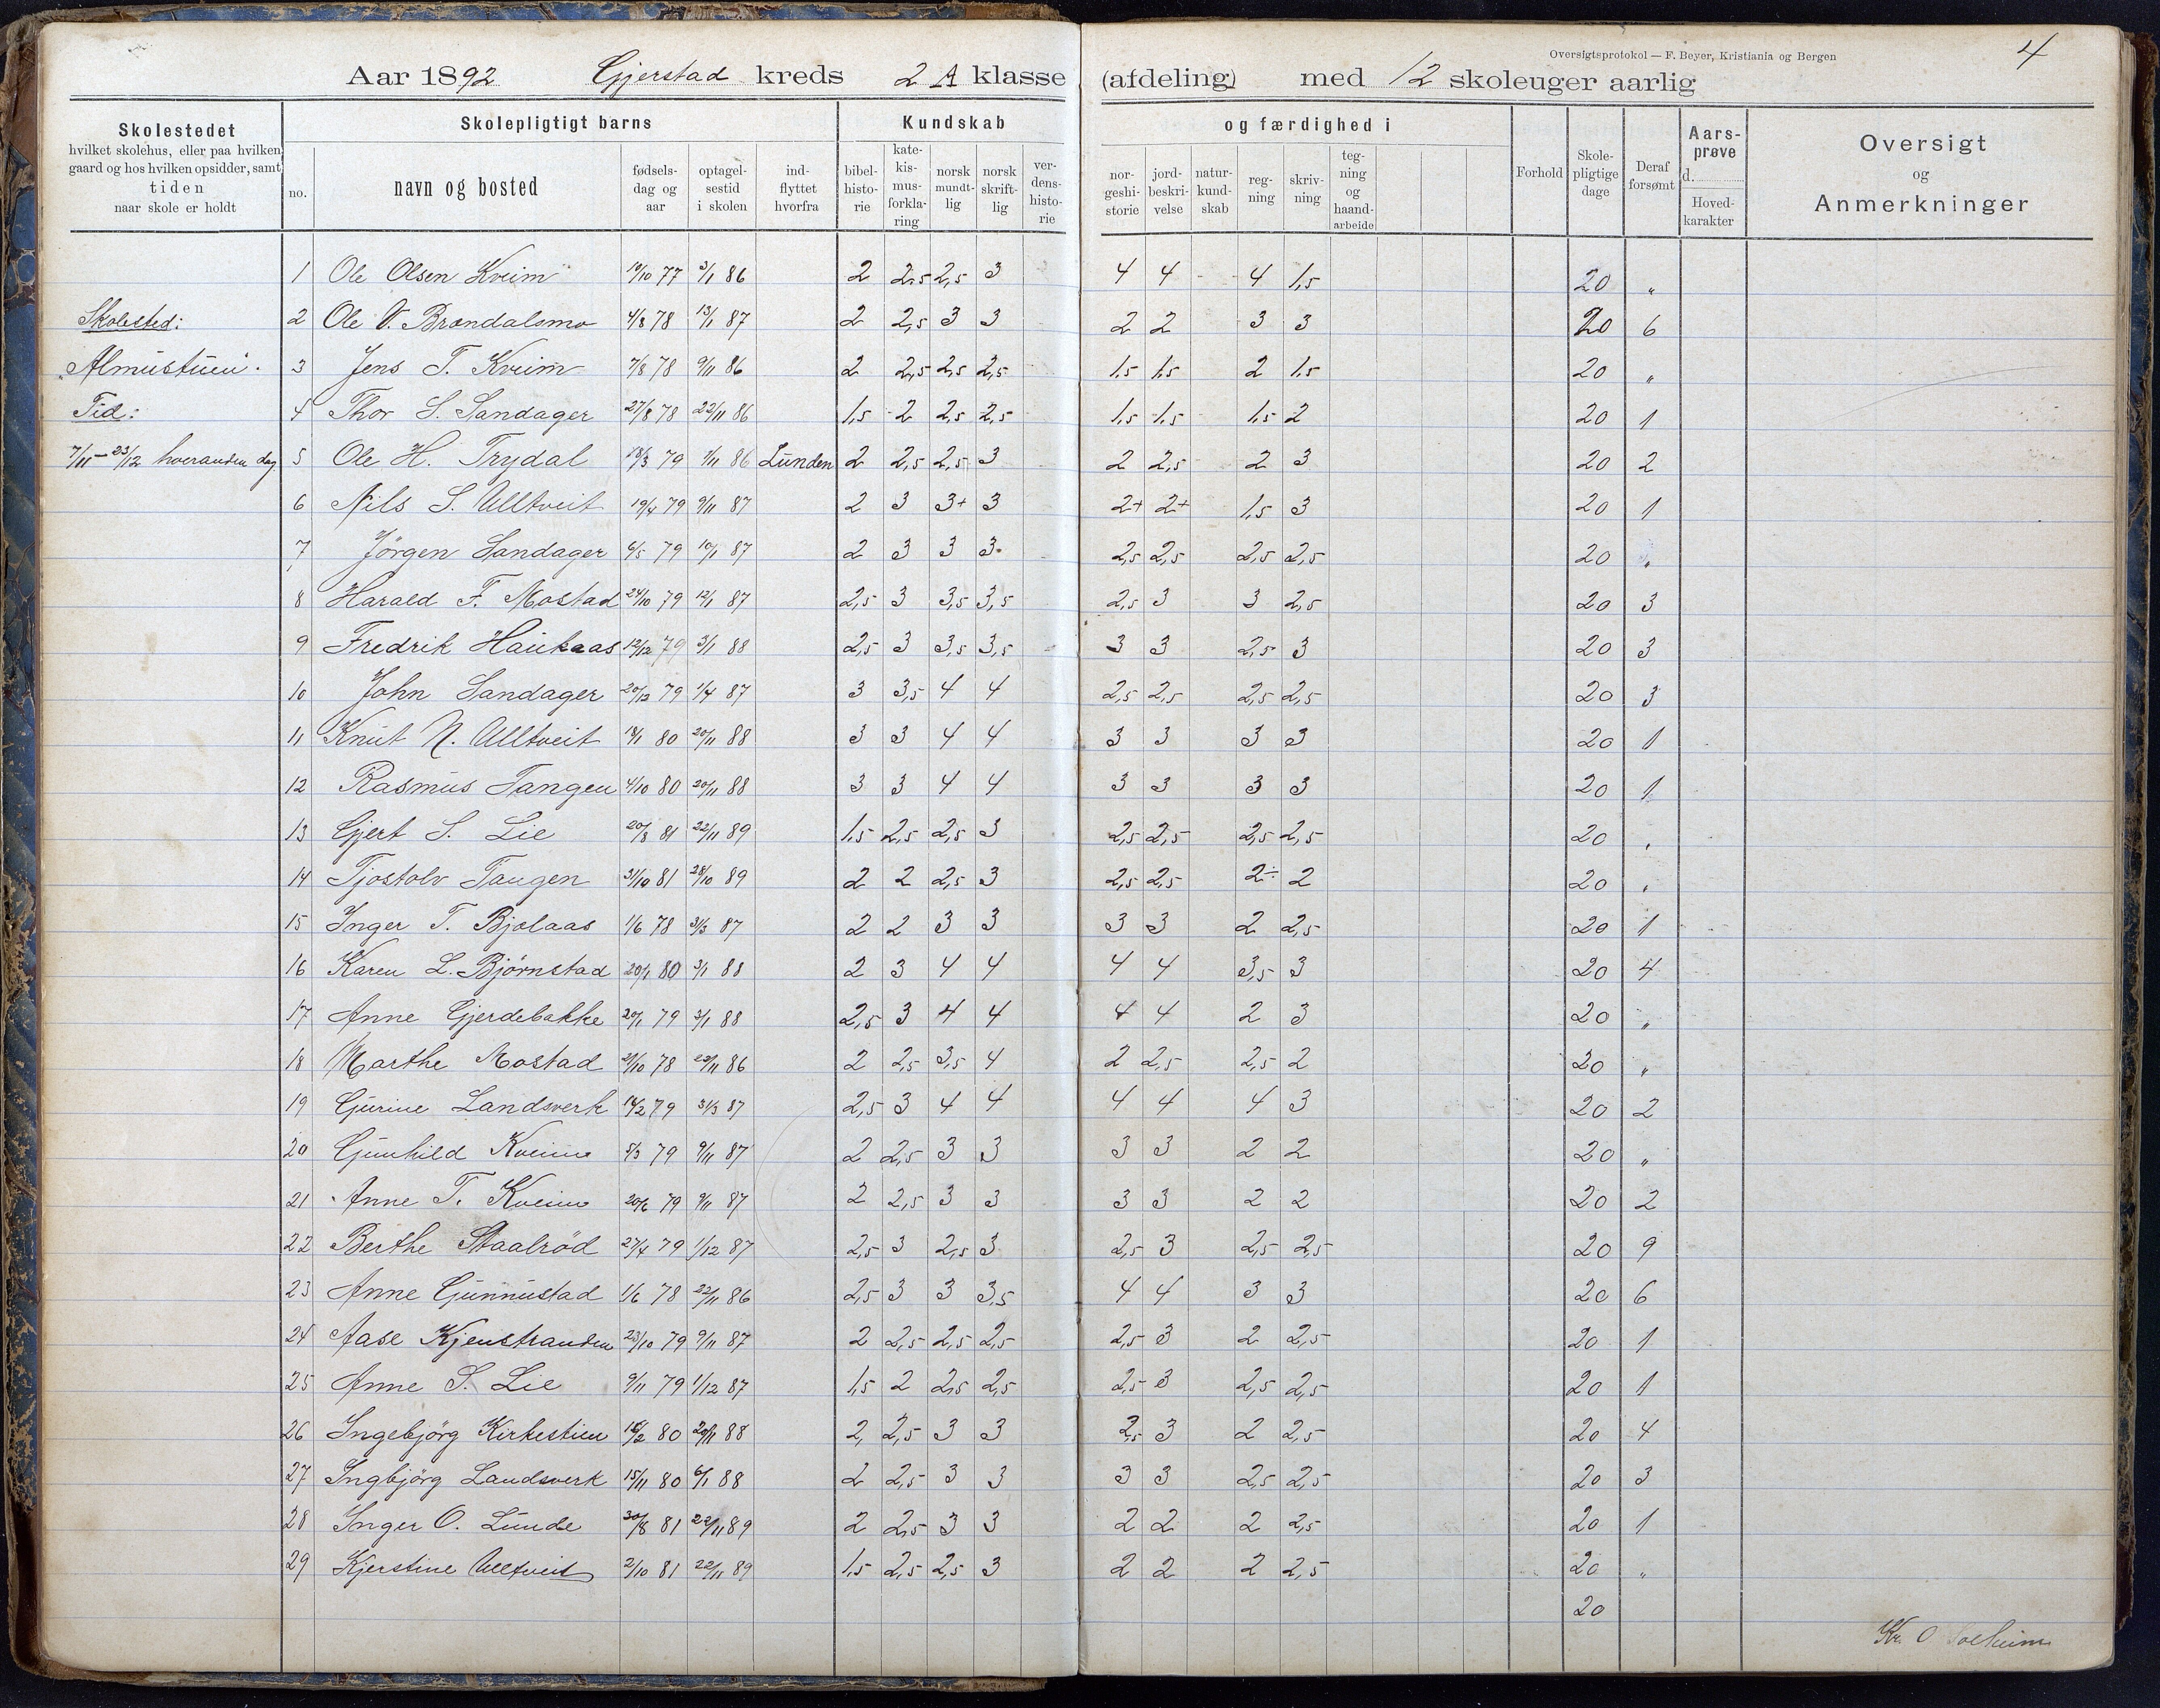 Oversigtsprotokol — F. Beyer, Kristiania og Bergen
4
Aar 1892 Gjerstad kreds 2 A klasse (afdeling) med 12 skoleuger aarlig
Skolestedet
hvilket skolehus, eller paa hvilken
gaard og hos hvilken opsidder, samt
tiden
naar skole er holdt
Skolepligtigt barns
no.
navn og bosted
fødsels-
dag og
aar
optagel-
sestid
i skolen
ind-
flyttet
hvorfra
Kundskab
bibel-
histo-
rie
kate-
kis-
mus-
forkla-
ring
norsk
mundt-
lig
norsk
skrift-
lig
ver-
dens-
histo-
rie
og færdighed i
nor-
geshi-
storie
jord-
beskri-
velse
natur-
kund-
skab
reg-
ning
skriv-
ning
teg-
ning
og
haand-
arbeide
Forhold
Skole-
pligtige
dage
Deraf
forsømt
Aars-
prøve
d.
Hoved-
karakter
Oversigt
og
Anmerkninger
Skolested:
"Almüstüen".
Tid:
7/11—23/12 hveranden dag
1 Ole Olsen Kveim 19/10 77 3/1 86 2 2,5 2,5 3 4 4 4 1,5 20 "
2 Ole V. Brændalsmo 4/8 78 13/1 87 2 2,5 3 3 2 2 3 3 20 6
3 Jens T. Kveim 7/8 78 9/11 86 2 2,5 2,5 2,5 1,5 1,5 2 1,5 20 "
4 Thor S. Sandager 27/8 78 22/11 86 1,5 2 2,5 2,5 1,5 1,5 1,5 2 20 1
5 Ole H. Trydal 18/3 79 1/11 86 Lünden 2 2,5 2,5 3 2 2,5 2 3 20 2
6 Nils S. Ulltveit 19/4 79 9/11 87 2 3 3+ 3 2+ 2+ 1,5 3 20 1
7 Jörgen Sandager 6/5 79 10/1 87 2 3 3 3 2,5 2,5 2,5 2,5 20 "
8 Harald F. Mostad 24/10 79 12/1 87 2,5 3 3,5 3,5 2,5 3 3 2,5 20 3
9 Fredrik Haükaas 12/12 79 3/1 88 2,5 3 3,5 3,5 3 3 2,5 3 20 3
10 John Sandager 20/12 79 1/4 87 3 3,5 4 4 2,5 2,5 2,5 2,5 20 3
11 Knüt N. Ulltveit 18/1 80 20/11 88 3 3 4 4 3 3 3 3 20 1
12 Rasmüs Tangen 4/10 80 20/11 88 3 3 4 4 3 3 3 3 20 1
13 Gjert S. Lie 20/8 81 22/11 89 1,5 2,5 2,5 3 2,5 2,5 2,5 2,5 20 "
14 Tjostolv Tangen 31/10 81 28/10 89 2 2 2,5 3 2,5 2,5 2÷ 2 20 "
15 Inger T. Bjolaas 1/6 78 31/3 87 2 2 3 3 3 3 2 2,5 20 1
16 Karen L. Bjørnstad 20/1 80 3/1 88 2 3 4 4 4 4 3,5 3 20 4
17 Anne Gjerdebakke 20/1 79 3/1 88 2,5 3 4 4 4 4 2 3 20 "
18 Marthe Mostad 21/10 78 22/11 86 2 2,5 3,5 4 2 2,5 2,5 2 20 "
19 Gürine Landsverk 14/2 79 31/3 87 2,5 3 4 4 4 4 4 3 20 2
20 Günhild Kveim 5/3 79 9/11 87 2 2,5 3 3 3 3 2 2 20 "
21 Anne T. Kveim 20/6 79 9/11 87 2 2,5 3 3 3 3 2 2 20 2
22 Berthe Staalröd 27/4 79 1/12 87 2,5 3 2,5 3 2,5 3 2,5 2,5 20 9
23 Anne Günnüstad 1/6 78 22/11 86 2,5 3 3 3,5 4 4 3 3 20 6
24 Aase Kjenstranden 23/10 79 9/11 87 2 2,5 2,5 2,5 2,5 3 2 2,5 20 1
25 Anne S. Lie 9/11 79 1/12 87 1,5 2 2,5 2,5 2,5 3 2,5 2,5 20 1
26 Ingebjörg Kirkestien 16/2 80 20/11 88 2, 2,5 3 3 2,5 3 2 2,5 20 4
27 Ingbjörg Landsverk 15/11 80 6/1 88 2 2,5 3 3 3 3 2,5 2,5 20 3
28 Inger O. Lünde 30/8 81 22/11 89 2 2,5 3 3 2 2 2 2,5 20 1
29 Kjerstine Ulltveit 2/10 81 22/11 89 1,5 2,5 2,5 3 2 2 2 2,5 20 "
20
Kr. O Solheim